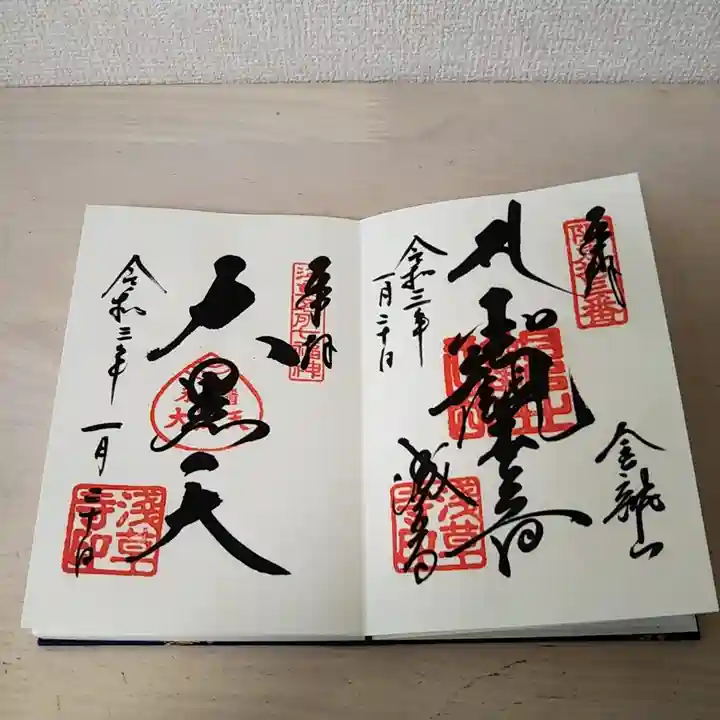 奉拝
坂東十三番
聖観世音
金龍山
浅草寺
令和三年
一月二十日
浅草寺印
奉拝
浅草名所七福神
大黒天
令和三年
一月二十日
浅草寺印